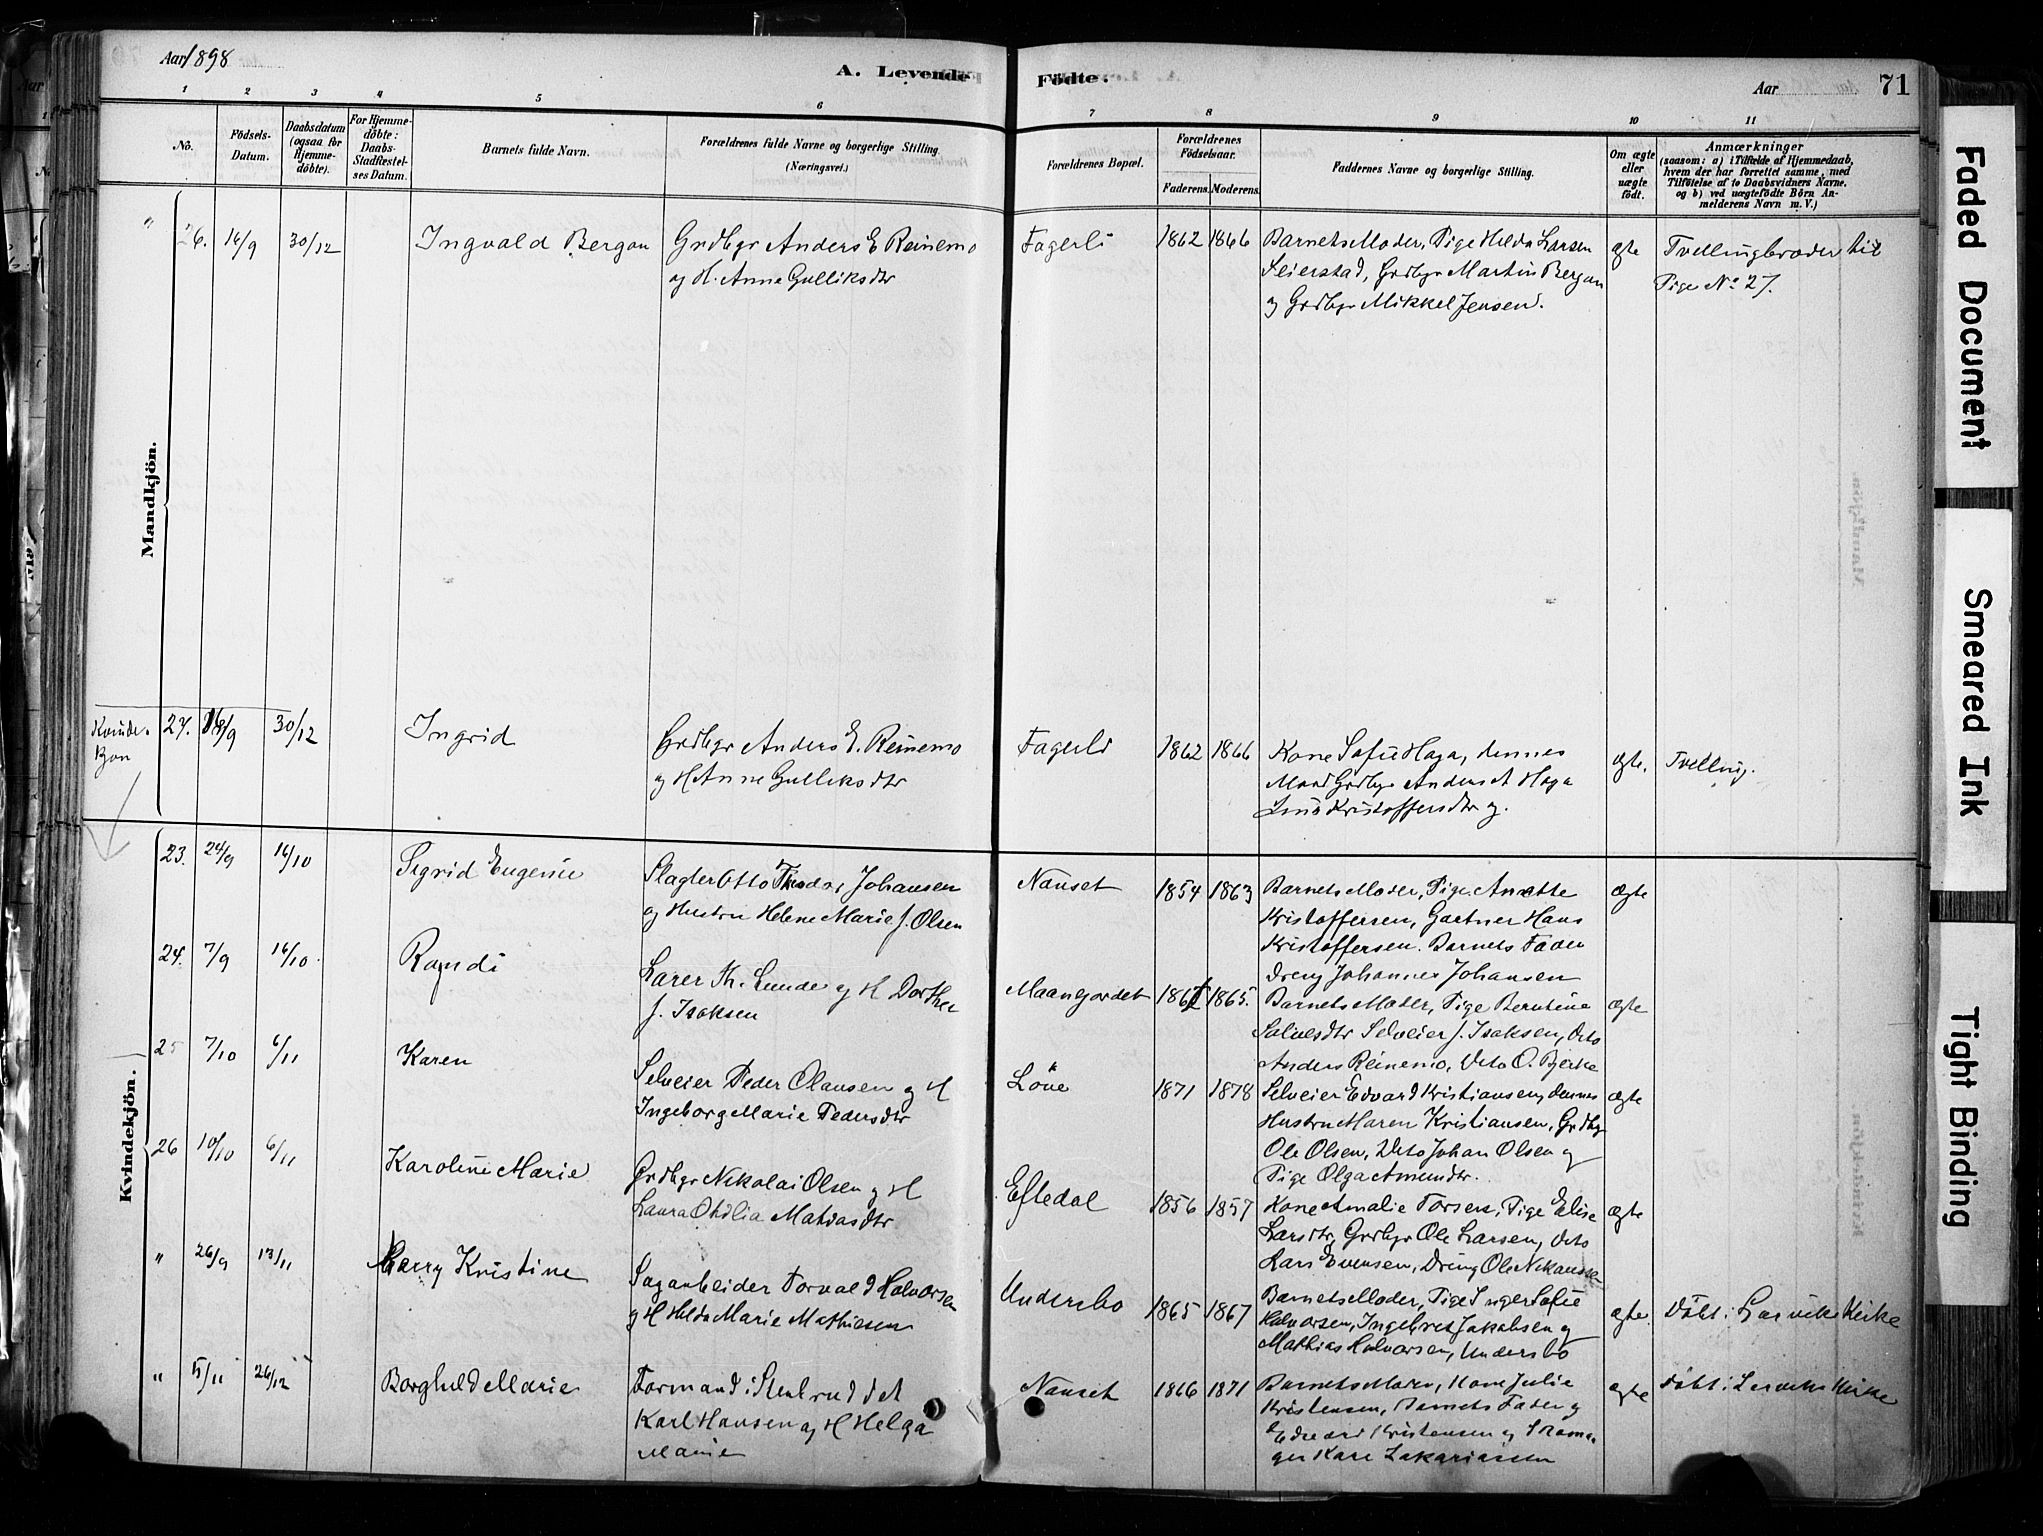 Aar 1898
A. Levende
Födte.
Aar
71
1 2 3 4 5 6 7 8 9 10 11
No.
Födsels-Datum.
Daabsdatum (ogsaa for Hjemme-döbte).
For Hjemme-döbte: Daabs-Stadfæstel-ses Datum.
Barnets fulde Navn.
Forældrenes fulde Navne og borgerlige Stilling.
(Næringsvei.)
Forældrenes Bopæl.
Forældrenes Födselsaar.
Faderens. Moderens.
Faddernes Navne og borgerlige Stilling.
Om ægte eller uægte födt.
Anmærkninger
(saasom: a) i Tilfælde af Hjemmedaab,
hvem der har forrettet samme, med
Tilföielse af to Daabsvidners Navne,
og b) ved uægtefödte Börn An-
melderens Navn m. V.)
Mandkjön.
" 26. 16/9 30/12 Ingvald Bergan Grdbgr Anders E Reinemo Fagerli 1862 1866 Barnets Moder, Pige Hilda Larsen ægte Tvellingbroder til
og H. Anne Gulliksdtr Seierstad, Grdbgr Martin Bergan Pige No 27.
og Grdbgr Mikkel Jensen.
Kvinde-
27. 16/9 30/12 Ingrid Grdbgr Anders E. Reinemo Fagerli 1862 1866 Kone Sofie Haga, dennes ægte. Tvelling.
og H Anne Gulliksdtr Mand Grdbgr Anders A Haga
Kristoffersdtr og.
Kvindekjön.
23. 24/9 16/10 Sigrid Eugenie Slagter Otto Theodor Johansen Nanset 1854 1863 Barnets Moder, Pige Anette ægte
og Hustru Helene Marie J. Olsen Kristoffersen, Gartner Hans
Kristoffersen. Barnets Fader
Dreng Johannes Johansen
24. 7/9 16/10. Randi Lærer Th. Lunde og H Dorthea Maanejordet 1865. Barnets Moder, Pige Berntine ægte
J. Isaksen Salvesdtr Selveier J. Isaksen, Dito
Anders Reinemo, Dito O. Bjerke
25 7/10 6/11 Karen Selveier Peder Olausen og H Löve 1871 1878 Selveier Edvard Kristiansen, dennes ægte
Ingeborg Marie Pedersdtr Hustru Maren Kristiansen, Grdbg
Ole Olsen, Dito Johan Olsen og
Pige Olga Amundtr.
26 10/10 6/11 Karoline Marie Grdbgr Nikolai Olsen og H Eftedal 1856 1857 Kone Amalie Torsen, Pige Elise ægte
Laura Othilia Matiasdtr Larsdtr, Grdbgr Ole Larsen, Dito
Lars Evensen, Dreng Ole
" 26/9 13/11 Kristine Sagarbeider Torvald Halvorsen Undersbo 1865 1867 Barnets Moder, Pige Inger Sofie ægte. Döbt i Larviks Kirke
og H Hilda Marie Mathisen Halvorsen, Ingebret Jakobsen og
Mathias Halvorsen, Undersbo
" 5/11 26/12 Borghild Marie Formand i Stenbruddet Nanset 1866 1871 Barnets Moder, Kone Julie ægte Döbt i Larviks Kirke
Karl Hansen og H Helga Kristensen, Barnets Fader og
Marie Edvard Kristensen og Skoma-
ger Kare Zakariassen
Faded Document
Smeared Ink
Tight Binding